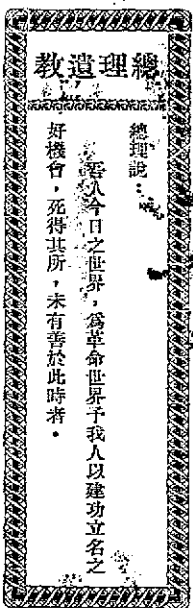 總理遺教
總理說：
吾人今日之世界，爲革命世界予我人以建功立名之
好機會，死得其所，未有善於此時者。